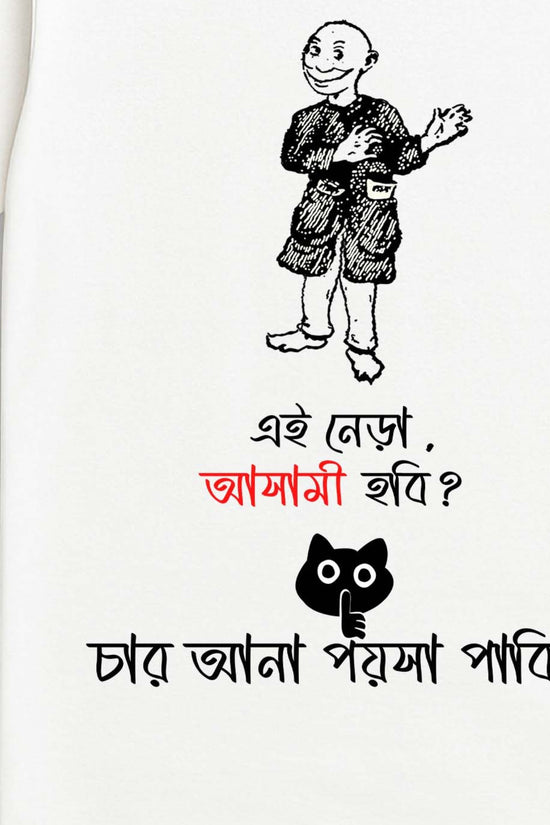 এই নেড়া,
আসামী হবি?
চার আনা পয়সা পাবি